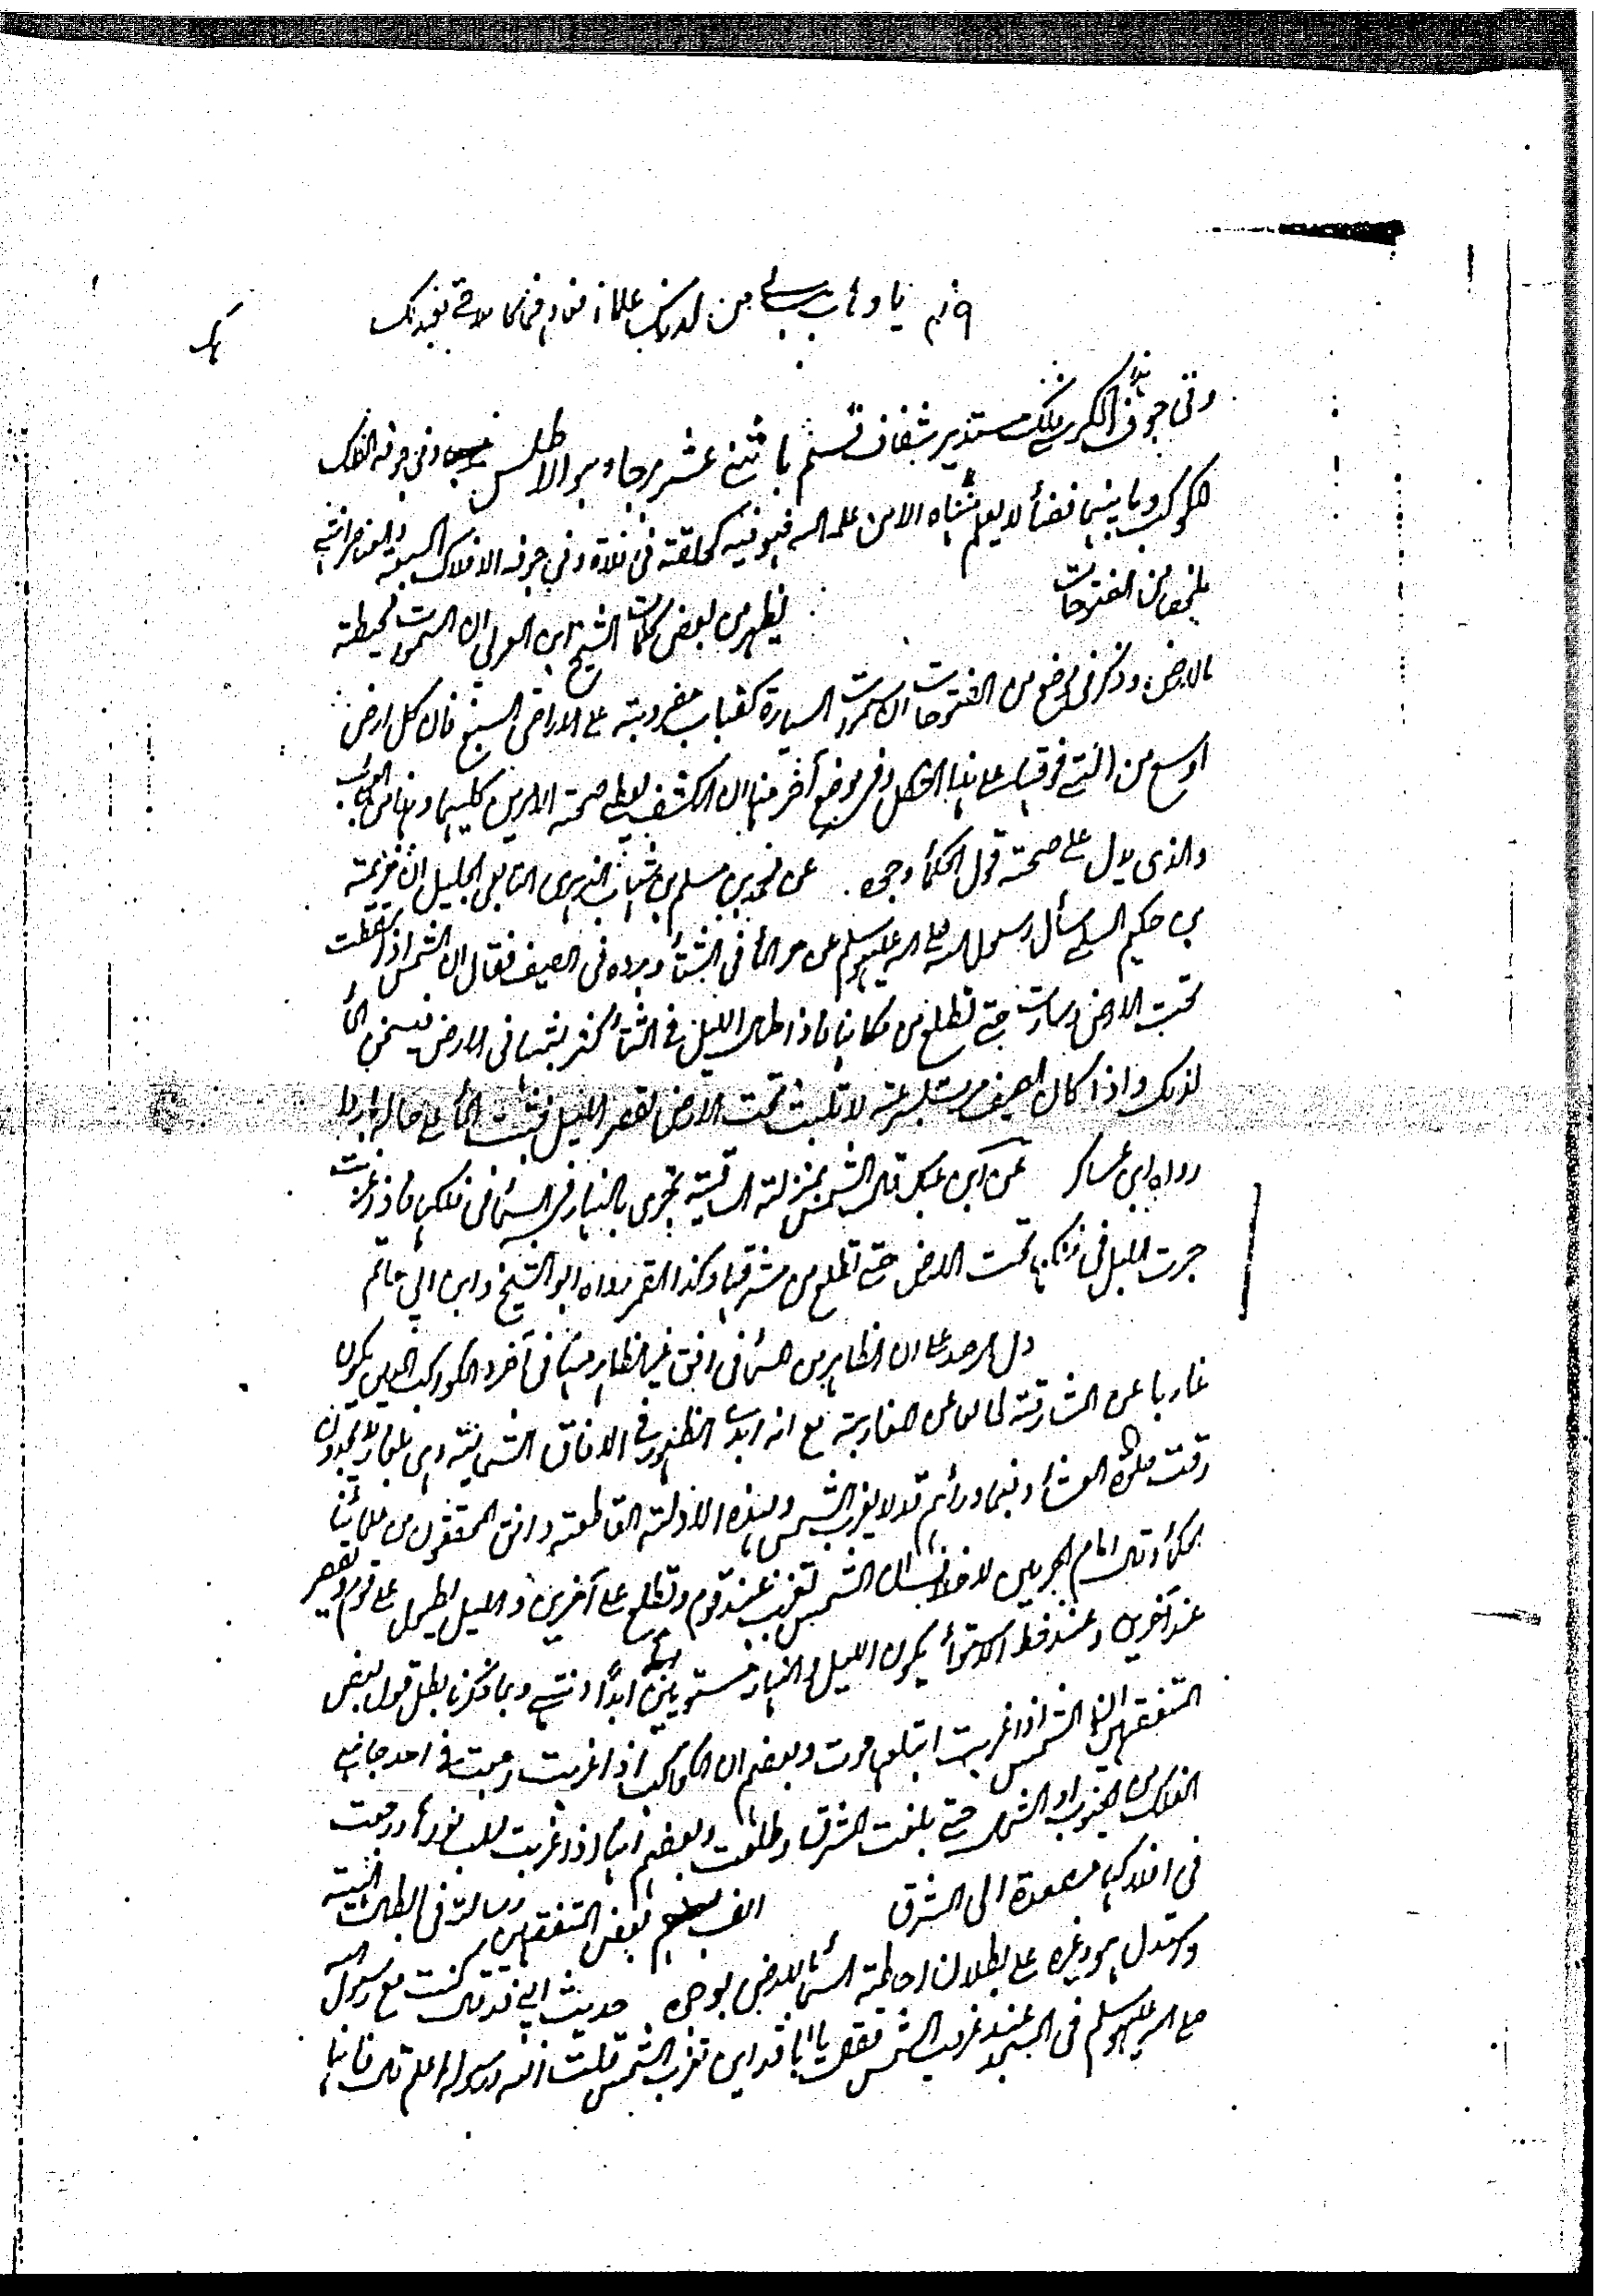 يا وهاب هب لي من لدنك علما
وفي جوف الكرسي فلك مستدير شفاف قسم باثني عشر برجا وهو الاطلس وفي جوفه الفلك
المكوكب وما بينهما فضأ لا يعلم منتهاه الا من علمه الله فهو فيه كحلقة في فلاة وفي جوفه الافلاك السبعة والعناصر انتهى
ملخصا من الفتوحات يظهر من بعض كلمات الشيخ ابن العربي ان السموت محيطة
بالارض وذكر في موضع من الفتوحات ان السموت السيارة كقباب مضروبة على الاراضي السبع فان كل ارض
اوسع من التي فوقها على هذا الشكل وفي موضع آخر منها ان الكشف يعطي صحة الامرين كليهما وهذا من العجائب
والذي يدل على صحة قول الحكمأ وجوه عن محمد بن مسلم بن شهاب الزهري التابعي الجليل ان خزيمة
بن حكيم السلمي سأل رسول الله صلى الله عليه وسلم عن حر المأ في الشتأ وبرده في الصيف فقال ان الشمس اذا سقطت
تحت الارض سارت حتى تطلع من مكانها فاذا طال الليل في الشتأ كثر لبثها في الارض فيسخن المأ
لذلك واذا كان الصيف مرت مسرعة لا تلبث تحت الارض لقصر الليل فثبت المأ على حاله باردا
رواه ابن عساكر عن ابن عباس قال الشمس بمنزلة الساقية تجري بالنهار في السمأ في فلكها فاذا غربت
جرت الليل في فلكها تحت الارض حتى تطلع من مشرقها وكذا القمر رواه ابو الشيخ وابن ابي حاتم
دل الرصد على ان الظاهر من السمأ في افق غير الظاهر منها في آخر والكوكب الذي يكون
غاربا عن الشارقة طالع عن الغاربة مع انه ابدي الظهور في الافاق الشمالية وهي بلغار لا يجدون
وقت صلوة العشأ وفيما ورائهم قد لا يغرب الشمس ولهذه الادلة القاطعة وافق المحققون من علمائنا
الحكمأ وقال امام الحرمين لا خلاف ان الشمس تغرب عند قوم وتطلع على آخرين والليل يطول على قوم ويقصر
عند آخرين وعند خط الاستوأ يكون الليل والنهار مستويين ابداً انتهى وبما ذكرنا بطل قول بعض
المتفقهين ان الشمس اذا غربت ابتلعها حوت وبعضهم ان الكواكب اذا غربت رجعت في احد جانبي
الفلك من الجنوب او الشمال حتى بلغت الشرق وطلعت وبعضهم انها اذا غربت سلب نورها ورجعت
في افلاكها مصعدة الى الشرق الف بعض المتفقهين رسالة في ابطال الهيئة
واستدل هو وغيره على بطلان احاطة السمأ بالارض بوجوه حديث ابي ذر قال كنت مع رسول الله
صلى الله عليه وسلم في المسجد عند غروب الشمس فقال يا ابا ذر اين تغرب الشمس قلت الله ورسوله اعلم قال فانها